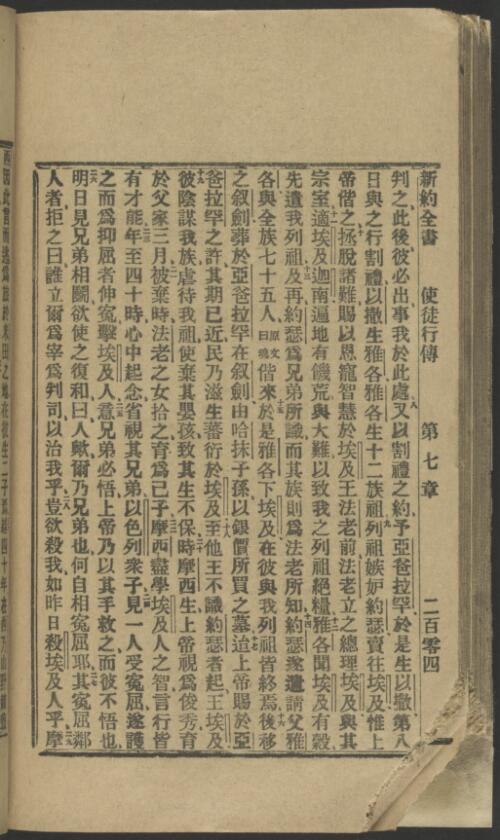 新約全書　使徒行傳　第七章　二百零四
判之、此後彼必出、事我於此處、八又以割禮之約、予亞爸拉罕、於是生以撒、第八
日與之行割禮、以撒生雅各、雅各生十二族祖、九列祖嫉妒約瑟、賣往埃及、惟上
帝偕之、十拯脫諸難、賜以恩寵智慧於埃及王法老前、法老立之總理埃及、與其
宗室、十一適埃及迦南遍地有饑荒、與大難、以致我之列祖絕糧、十二雅各聞埃及有穀、
先遣我列祖、十三及再、約瑟爲兄弟所識、而其族則爲法老所知、十四約瑟遂遣請父雅
各、與全族七十五人、原文曰魂偕來、十五於是雅各下埃及、在彼與我列祖皆終焉、十六後移
之敘劍、葬於亞爸拉罕在敘劍由哈抹子孫以銀價所買之墓、十七迨上帝賜於亞
爸拉罕之許、其期已近、民乃滋生蕃衍於埃及、十八至他王不識約瑟者起、王埃及、
十九彼陰謀我族、虐待我祖、使棄其嬰孩、致其生不保、二十時摩西生、上帝視爲俊秀、育
於父家三月、二一被棄時、法老之女拾之、育爲己子、二二摩西盡學埃及人之智、言行皆
有才能、二三年至四十時、心中起念、省視其兄弟以色列衆子、二四見一人受寃屈、遂護
之、而爲抑屈者伸寃、擊埃及人、二五意兄弟必悟上帝乃以其手救之、而彼不悟也、
二六明日見兄弟相鬬、欲使之復和、曰、人歟、爾乃兄弟也、何自相寃屈耶、二七其寃屈鄰
人者、拒之曰、誰立爾爲宰爲判司、以治我乎、二八豈欲殺我、如昨日殺埃及人乎、二九摩